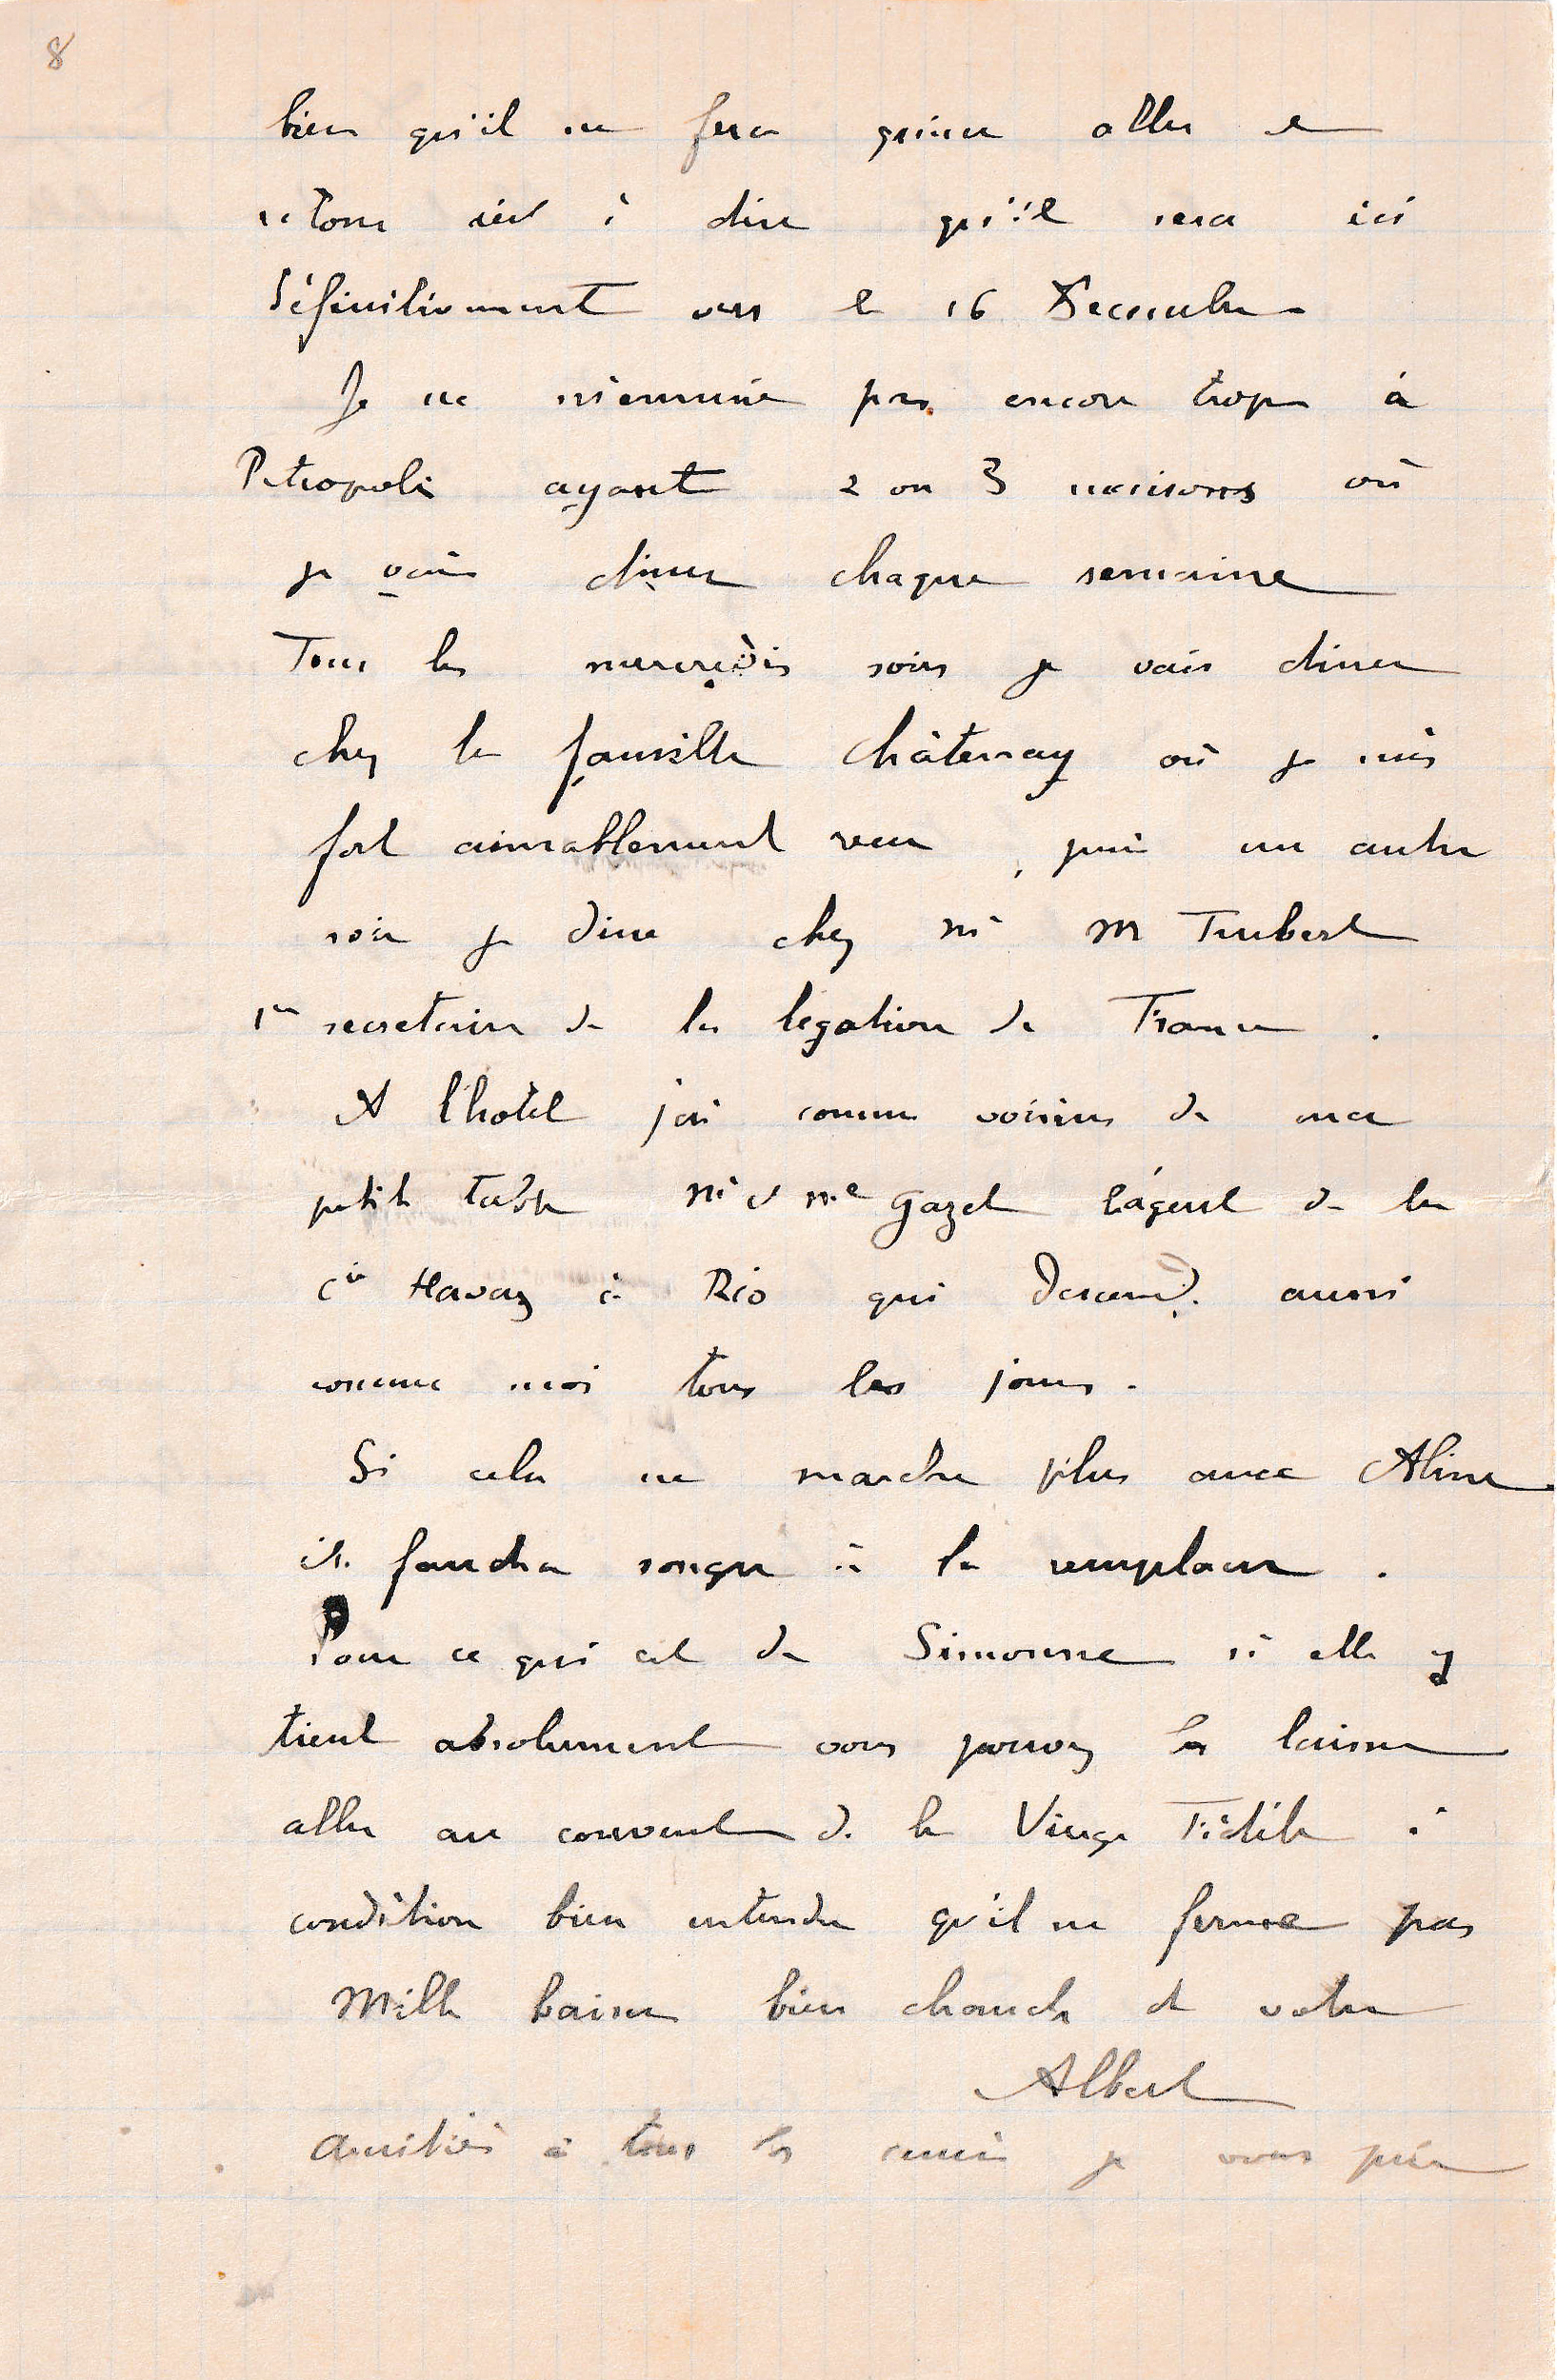 8
bien qu'il ne fera qu'une aller et
retour c'est à dire qu'il sera ici
définitivement vers le 16 Decembre
Je ne m'ennuie pas encore trop à
Petropolis ayant 2 ou 3 maisons où
je vais diner chaque semaine
Tous les mercredis soirs je vais diner
chez la famille Châtenay où je suis
fort aimablement reçu, puis un autre
soir je dine chez Mr M
1er secretaire de la legation de France.
A l'hotel j'ai comme voisins de ma
petite table Mr et Me Gazet l'agent de la
Cie Havas à Rio qui descend aussi
comme moi tous les jours.
Si cela ne marche plus avec Aline
il faudra songer à la remplacer.
Pour ce qui est de Simonne si elle y
tient absolument vous pouvez la laisser
aller au couvent de la Vierge Fidèle à
condition bien entendu qu'il ne ferme pas
Mille baisers bien chauds de votre
Albert
Amitiés à tous les amis je vous prie